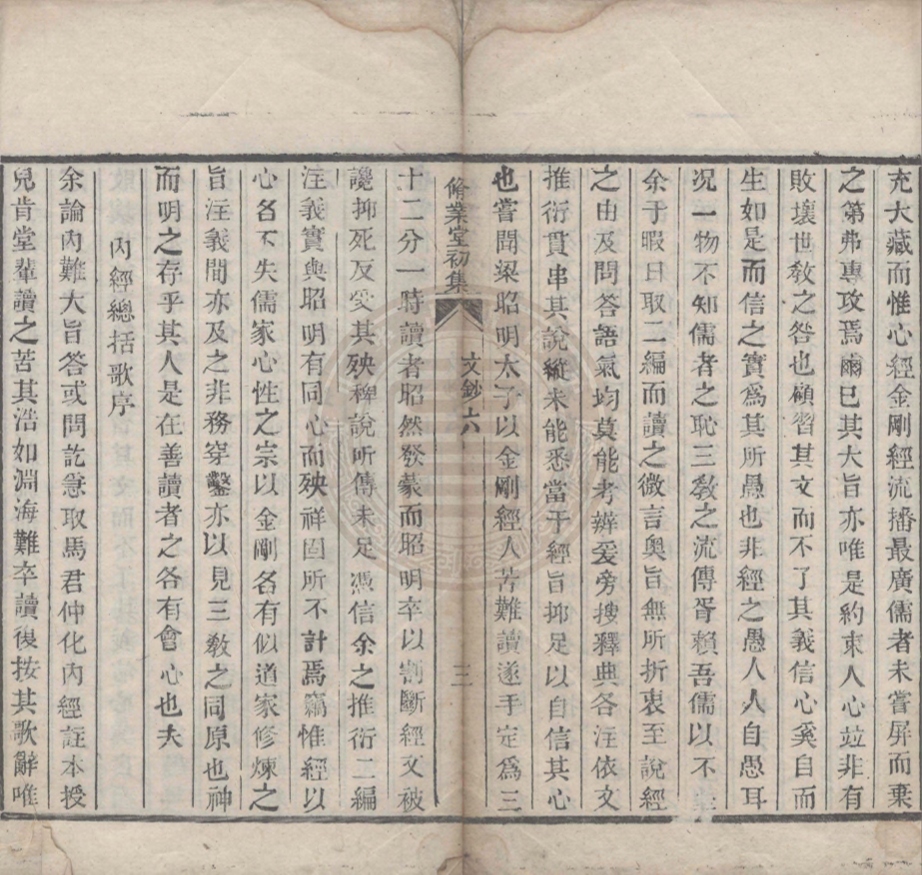 充大藏而惟心經金剛經流播最廣儒者未嘗屏而棄
之第弗專攻焉爾已其大旨亦唯是約束人心竝非有
敗壞世敎之咎也顧習其文而不了其義信心奚自而
生如是而信之實爲其所愚也非經之愚人人自愚耳
况一物不知儒者之恥三敎之流傳胥賴吾儒以不
余于暇日取二編而讀之微言奧旨無所折衷至說經
之由及問答語氣均莫能考辨爰旁搜釋典各注依文
推衍貫串其說縱未能悉當于經旨抑足以自信其心
也嘗聞梁昭明太子以金剛經人苦難讀遂手定爲三
脩業堂初集 文鈔六 三
十二分一時讀者昭然發蒙而昭明卒以割斷經文被
譏抑死反受其殃稗說所傳未足憑信余之推衍二編
注義實與昭明有同心而殃祥固所不計焉竊惟經以
心名不失儒家心性之宗以金剛名有似道家修煉之
旨注義間亦及之非務穿鑿亦以見三敎之同原也神
而明之存乎其人是在善讀者之各有會心也夫
內經總括歌序
余論內難大旨答或問訖急取馬君仲化內經註本授
兒肯堂輩讀之苦其浩如淵海難卒讀後按其歌辭唯